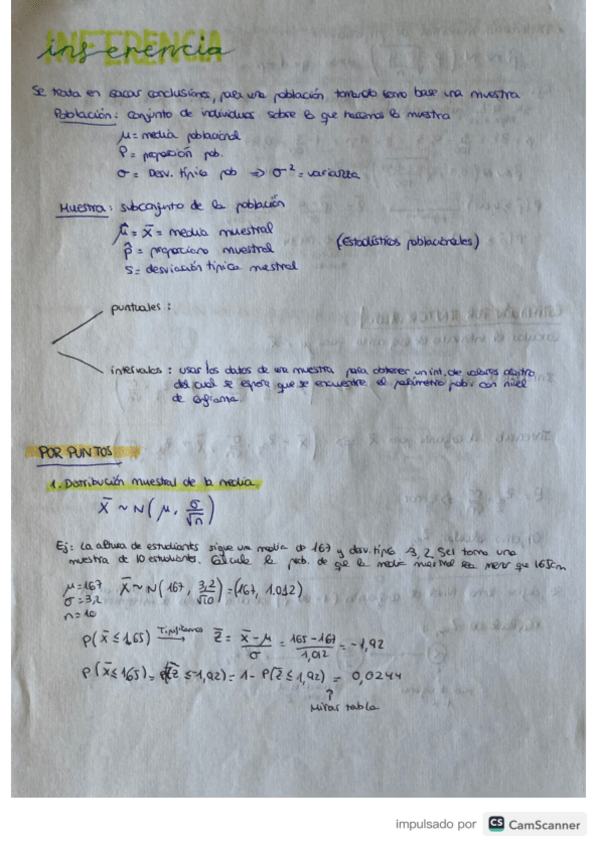 INFERENCIA
inferencia
Se trata en sacar conclusiones, para una población tomando como base una muestra
Población: conjunto de individuos sobre lo que hacemos la muestra
μ = media poblacional
P = proporción pob.
σ = Desv. típica pob ⇒ σ² = varianza
Muestra: subconjunto de la población
μ̂ = x̄ = media muestral
p̂ = proporción muestral
(Estadísticos poblacionales)
s = desviación típica mestral
puntuales:
intervalos: usar los datos de una muestra para obtener un int. de valores dentro
del cual se espera que se encuentre el parámetro pob. con nivel
de confianza.
POR PUNTOS
1. Distribución muestral de la media
X̄ ~ N(μ, σ/√n)
Ej: La altura de estudiantes sigue una media de 167 y desv. típic 3,2. Sei tomo una
muestra de 10 estudiantes. Calcula la prob. de que la media muestral sea menor que 165cm
μ = 167 X̄ ~ N(167, 3,2/√10) = (167, 1.012)
σ = 3,2
n = 10
P(x̄ ≤ 1,65) Tipificamos → Z̄ = x̄-μ/σ = 165-167/1,012 = -1,92
P(x̄ ≤ 165) = P(Z̄ ≤ -1,92) = 1 - P(Z ≤ 1,92) = 0,0244
↑
Mirar tabla
impulsado por CS CamScanner